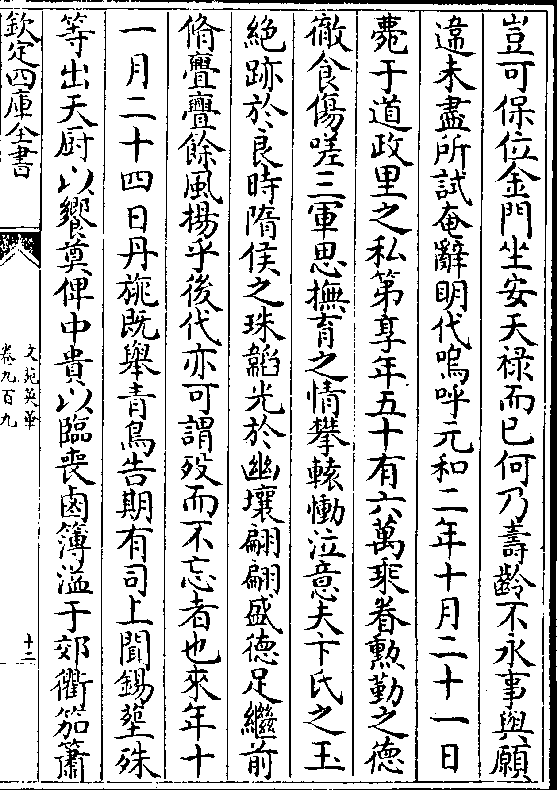 豈可保位金門坐安天祿而已何乃壽齡不永事與願
違未盡所試奄辭明代嗚呼元和二年十月二十一日
薨于道政里之私第享年五十有六萬乘眷勲勤之德
徹食傷嗟三軍思撫育之情攀轅慟泣意夫卞氏之玉
絶跡於良時隋侯之珠韜光於幽壤翩翩盛德足繼前
脩亹亹餘風揚乎後代亦可謂歿而不忘者也來年十
一月二十四日丹旐既舉青鳥告期有司上聞錫塟殊
等出天厨以饗奠俾中貴以臨喪鹵簿溢于郊衢笳簫
欽定四庫全書
文苑英華
卷九百九
十二